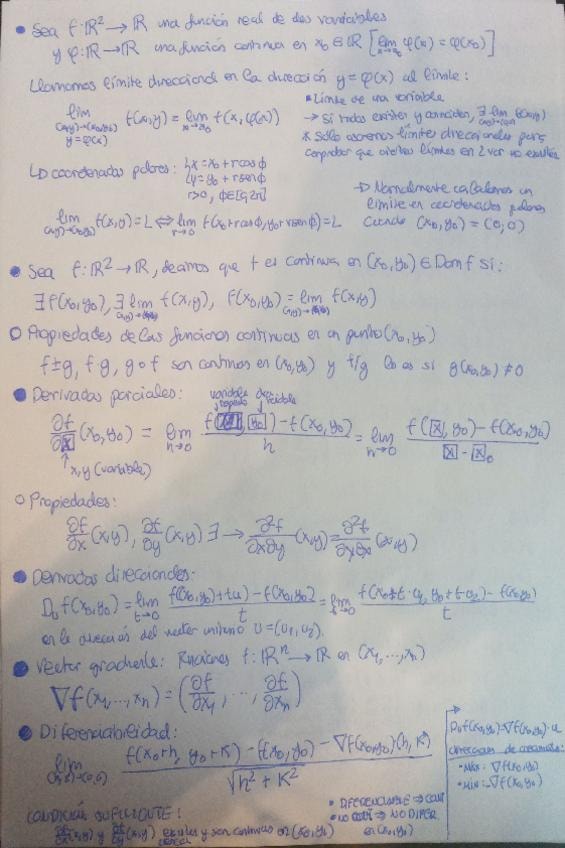 • Sea f: ℝ² → ℝ una función real de dos variables
y φ: ℝ → ℝ una función continua en x₀ ∈ ℝ [lim x→x₀ φ(x) = φ(x₀)]
Llamamos límite direccional en la dirección y = φ(x) al límite:
lim (x,y)→(x₀,y₀) y=φ(x) f(x,y) = lim x→x₀ f(x, φ(x))
• Límite de una variable
→ Si todos existen y coinciden, ∃ lim f(x,y)
* Sólo usaremos límites direccionales para
comprobar que ciertos límites en 2 var no existen
↳ coordenadas polares: { x = x₀ + r cos ϕ
y = y₀ + r sen ϕ
r>0, ϕ∈[0,2π]
→ Normalmente calculamos un
límite en coordenadas polares
cuando (x₀,y₀) = (0,0)
lim (x,y)→(x₀,y₀) f(x,y) = L ⇔ lim r→0 f(x₀+r cos ϕ, y₀+r sen ϕ) = L
• Sea f: ℝ² → ℝ, decimos que f es continua en (x₀,y₀) ∈ Dom f si:
∃ f(x₀,y₀), ∃ lim f(x,y), f(x₀,y₀) = lim f(x,y)
○ Propiedades de las funciones continuas en un punto (x₀,y₀)
f±g, f·g, g∘f son continuas en (x₀,y₀) y f/g lo es si g(x₀,y₀) ≠ 0
• Derivadas parciales:
variable
∂f/∂x (x₀,y₀) = lim h→0 f( , y₀) − f(x₀,y₀) / h = lim h→0 f(x, y₀) − f(x₀,y₀) / x − x₀
↑ x, y (variable)
○ Propiedades:
∂f/∂x (x,y), ∂f/∂y (x,y) ∃ → ∂²f/∂x∂y (x,y) = ∂²f/∂y∂x (x,y)
• Derivadas direccionales:
Dᵤ f(x₀,y₀) = lim t→0 f((x₀,y₀)+tu) − f(x₀,y₀) / t = lim t→0 f(x₀+t·u₁, y₀+t·u₂) − f(x₀,y₀) / t
en la dirección del vector unitario u = (u₁,u₂).
• Vector gradiente: Funciones f: ℝⁿ → ℝ en (x₁,...,xₙ)
∇f(x₁,...,xₙ) = (∂f/∂x₁, ..., ∂f/∂xₙ)
• Diferenciabilidad:
lim (h,k)→(0,0) f(x₀+h, y₀+k) − f(x₀,y₀) − ∇f(x₀,y₀)(h,k) / √h² + k²
Dᵤf(x₀,y₀) = ∇f(x₀,y₀)·u
direccion de crecimiento:
• Máx: ∇f(x₀,y₀)
• Mín: −∇f(x₀,y₀)
CONDICIÓN SUFICIENTE:
∂f/∂x (x,y) y ∂f/∂y (x,y) existen y son continuas en (x₀,y₀)
• DIFERENCIABLE ⇒ CONT
• NO CONT ⇒ NO DIFER.
en (x₀,y₀)